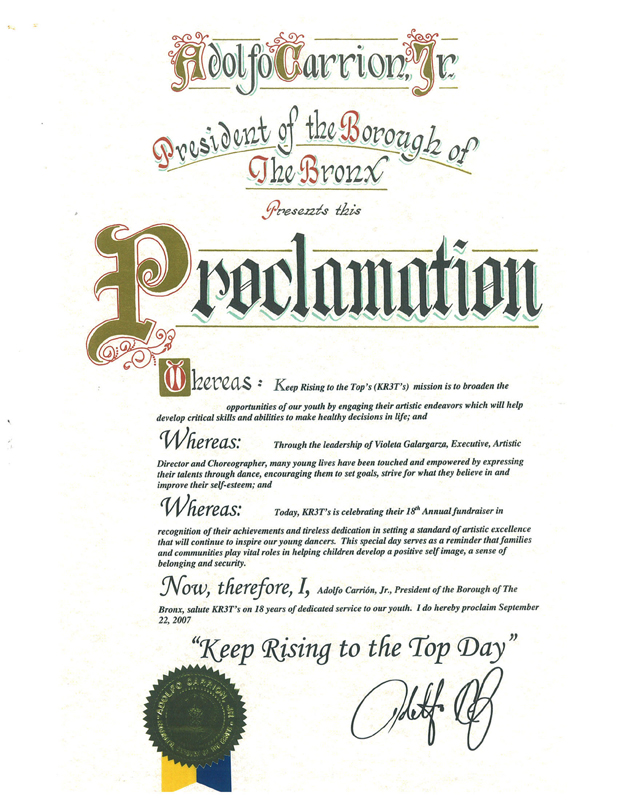 Adolfo Carrion, Jr.
President of the Borough of
The Bronx
Presents this
Proclamation
Whereas: Keep Rising to the Top's (KR3T's) mission is to broaden the
opportunities of our youth by engaging their artistic endeavors which will help
develop critical skills and abilities to make healthy decisions in life; and
Whereas: Through the leadership of Violeta Galargarza, Executive, Artistic
Director and Choreographer, many young lives have been touched and empowered by expressing
their talents through dance, encouraging them to set goals, strive for what they believe in and
improve their self-esteem; and
Whereas: Today, KR3T's is celebrating their 18th Annual fundraiser in
recognition of their achievements and tireless dedication in setting a standard of artistic excellence
that will continue to inspire our young dancers. This special day serves as a reminder that families
and communities play vital roles in helping children develop a positive self image, a sense of
belonging and security.
Now, therefore, I, Adolfo Carrión, Jr., President of the Borough of The
Bronx, salute KR3T's on 18 years of dedicated service to our youth. I do hereby proclaim September
22, 2007
"Keep Rising to the Top Day"
ADOLFO CARRION, JR.